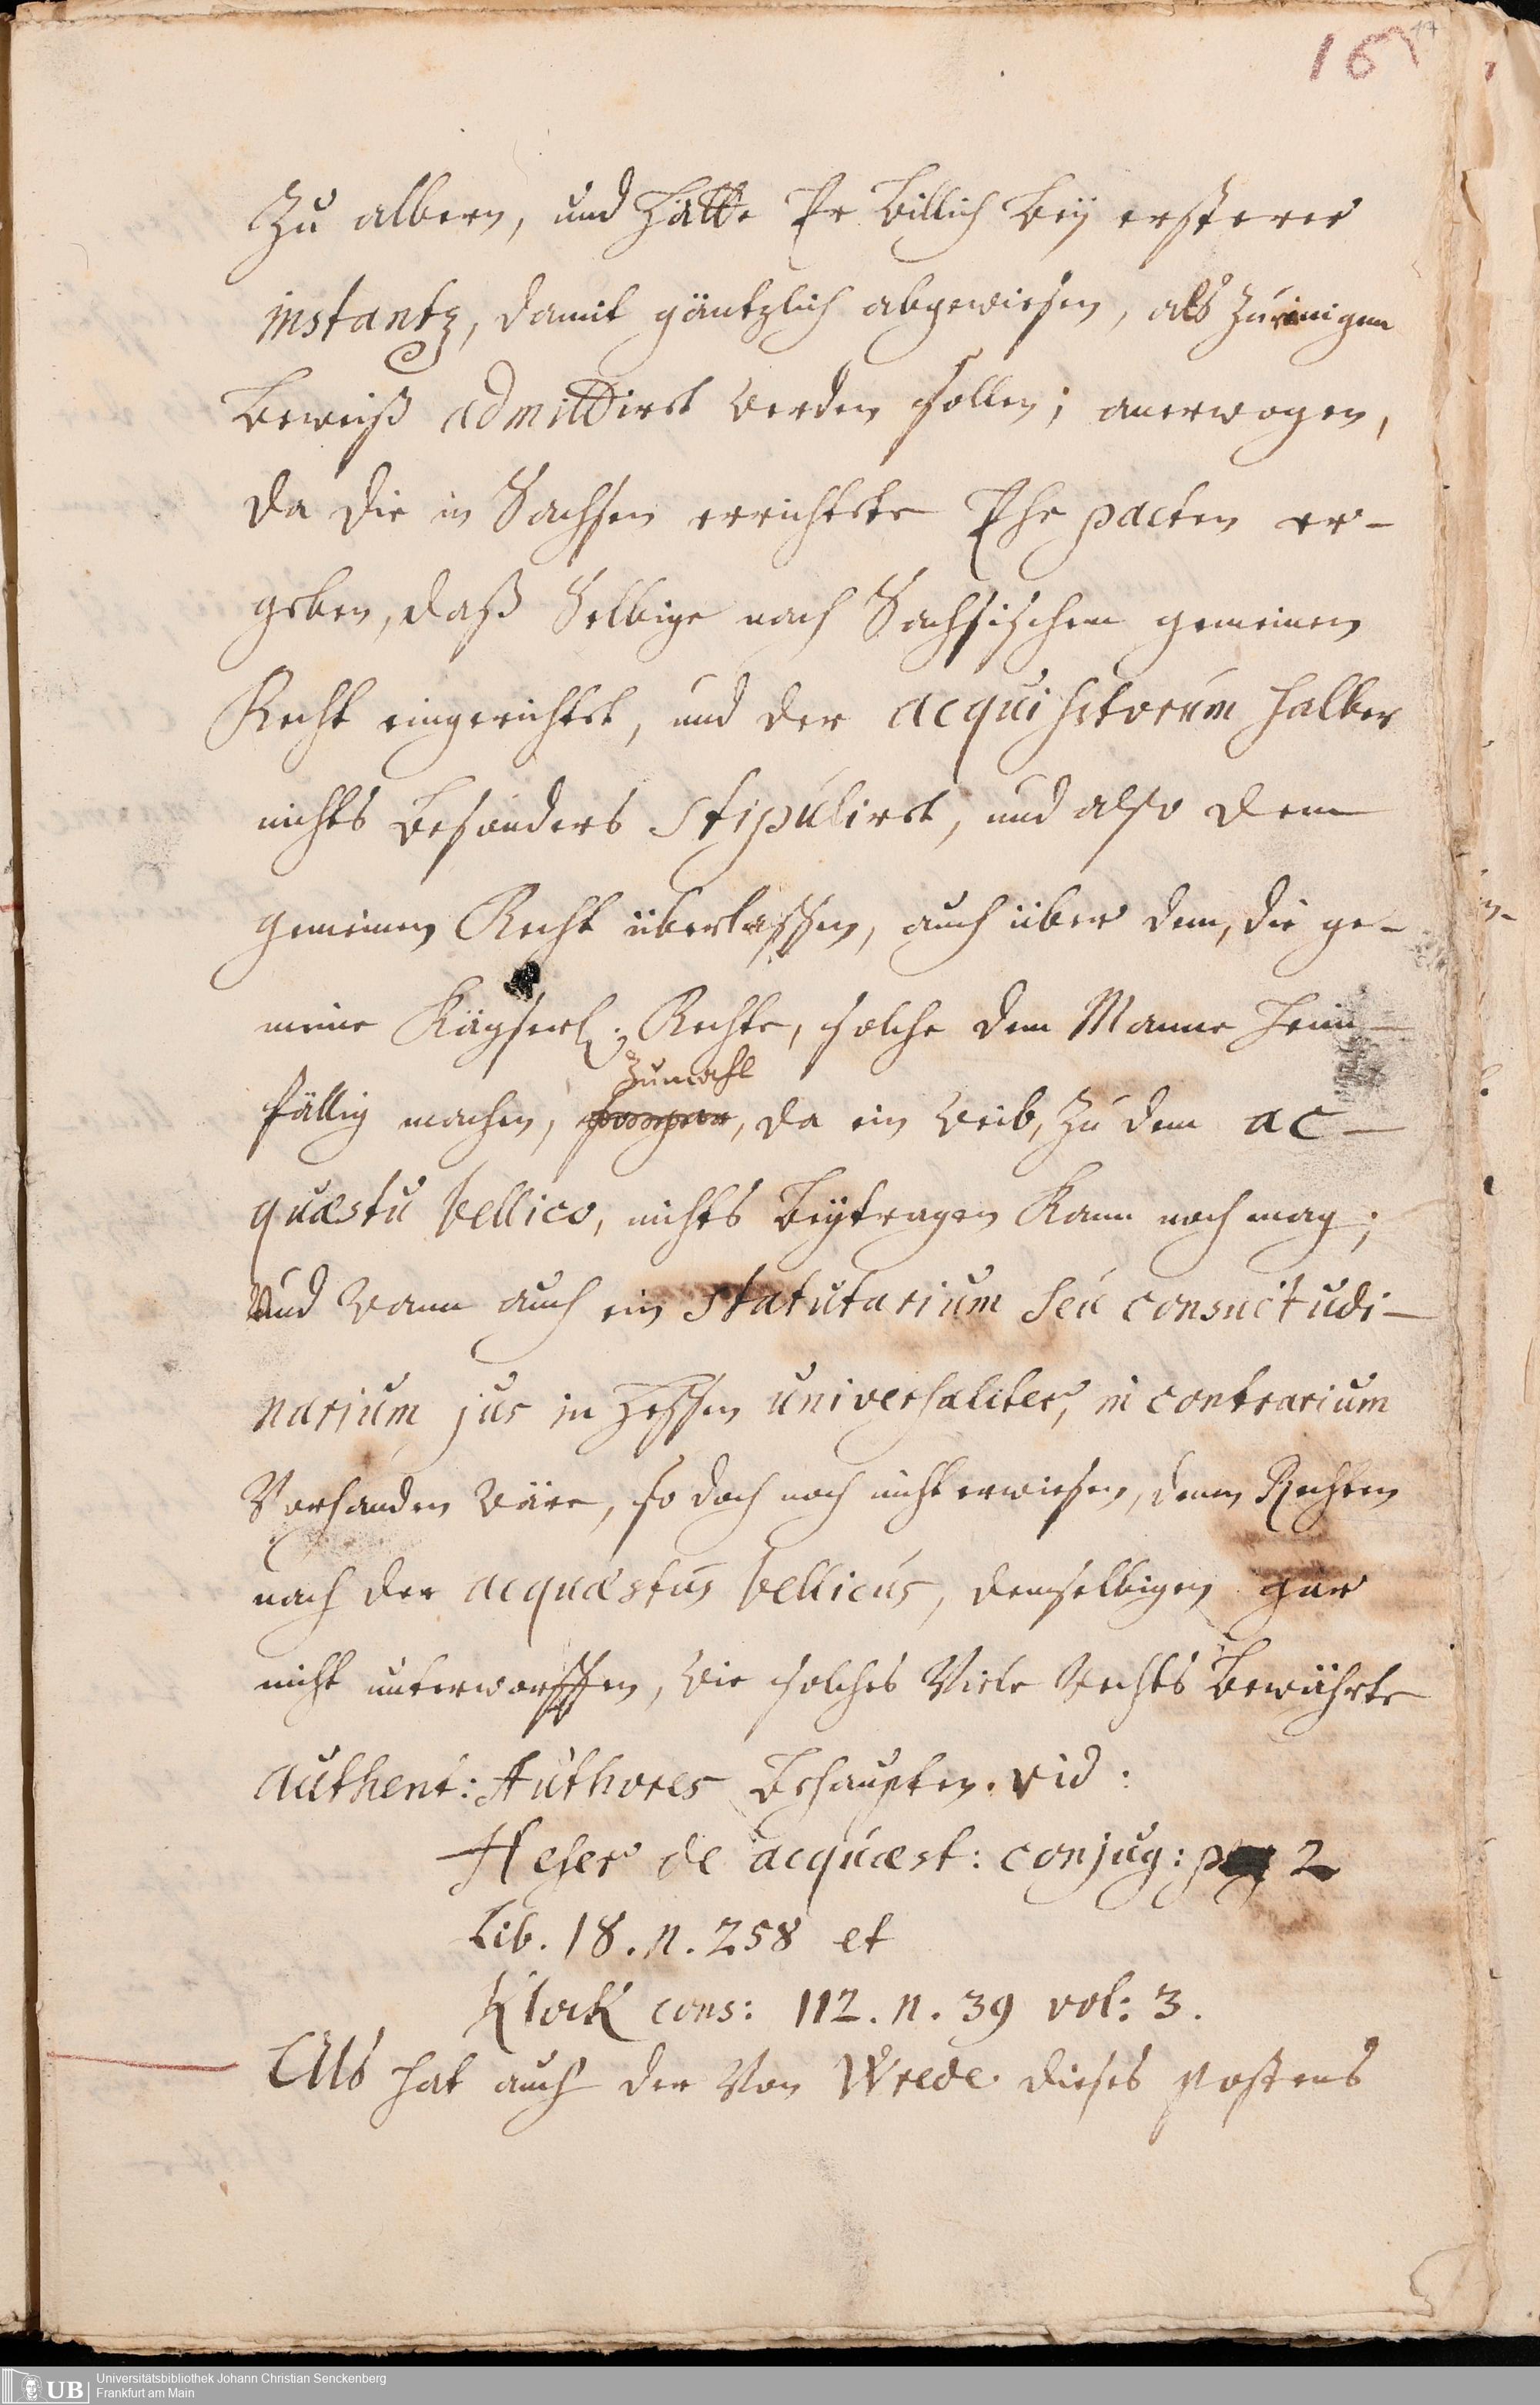 47
16
Zu albern, und hätte Er billich bey ersterer
instantz, damit gäntzlich abgewiesen, als zu einigem
Beweiß admittiret werden sollen; anerwogen,
da die in Sachsen errichtete Ehe pacten er-
geben, daß Selbige nach Sachsischem gemeinen
Recht eingerichtet, und der acquisitorum halber
nichts besonders stipuliret, und also dem
gemeinen Recht überlassen, auch über dem, die ge-
meine Käyserl: Rechte, solche dem Manne heim-
zumahl
fällig machen, , da ein Weib, zu dem ac-
quæstu bellico, nichts beytragen kann noch mag;
Und wann auch ein statutarium seu consuetudi-
narium jus in Hessen universaliter, in contrarium
Vorhanden wäre, so doch noch nicht erwiesen, denen Rechten
nach der acquæstus bellicus, demselbigen gar
nicht unterworffen, wie solches Viele Rechts bewährte
authent: Authores behaupten. vid:
Heser de acquæst: conjug: pag 2
Lib. 18. n. 258 et
Klock cons: 112. n. 39 vol: 3.
Als hat auch der Von Wrede dieses postens
UB Universitätsbibliothek Johann Christian Senckenberg
Frankfurt am Main